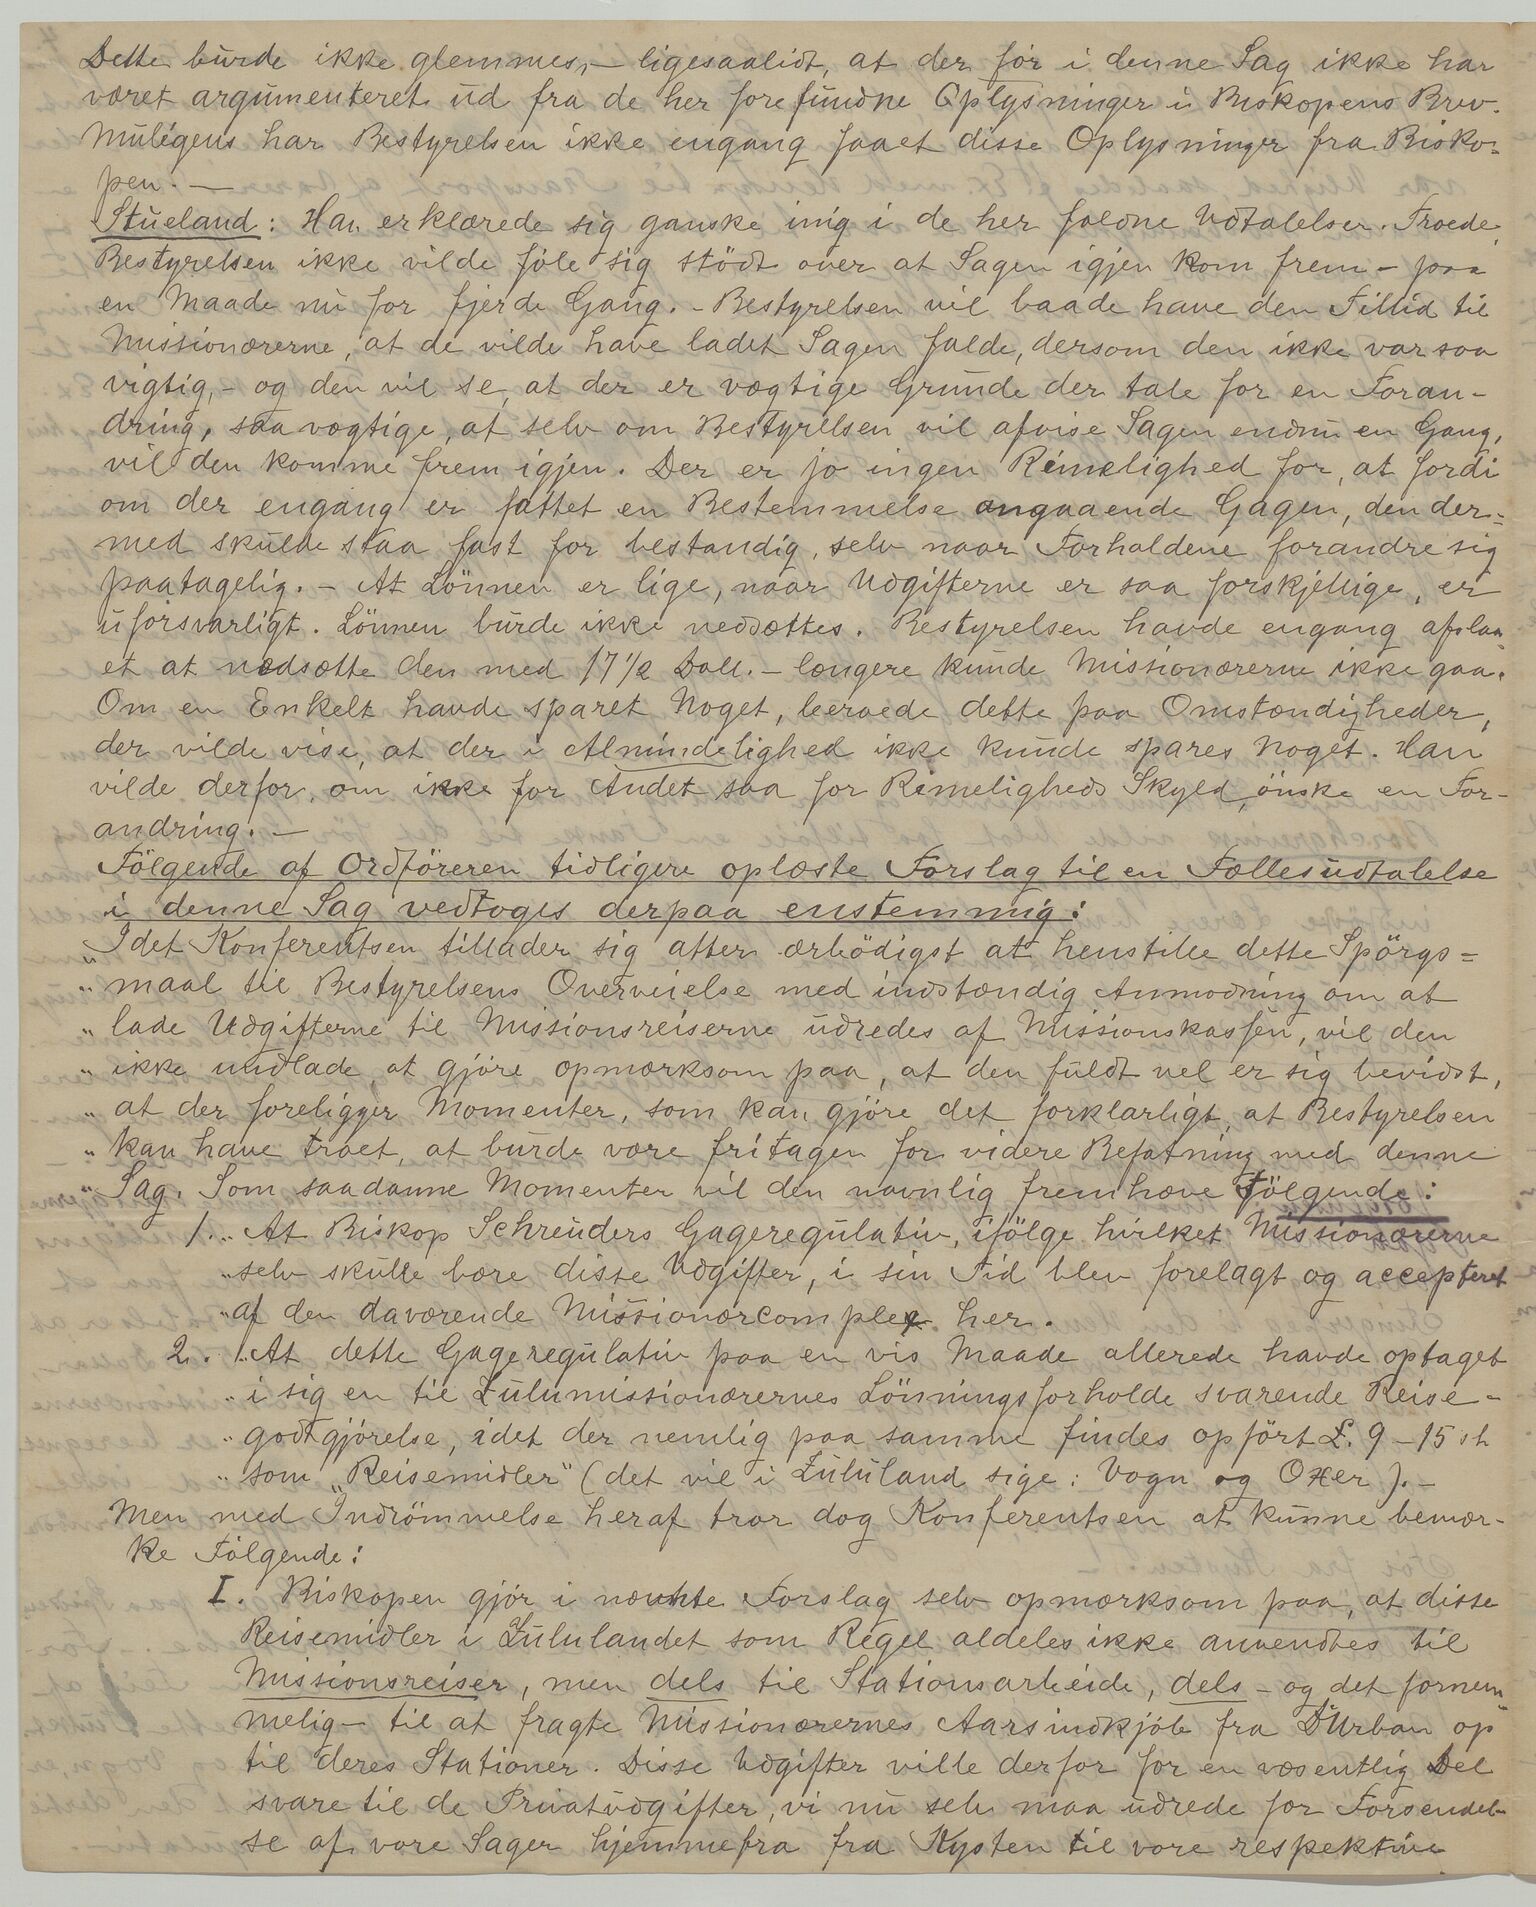 Dette burde ikke glemmes, – ligesaalidt, at der før i denne Sag ikke har
været argumenteret ud fra de her forefundne Oplysninger i Biskopens Brev.
Muligens har Bestyrelsen ikke engang faaet disse Oplysninger fra Bisko-
pen. –
Stueland: Han erklærede sig ganske enig i de her faldne Udtalelser. Troede,
Bestyrelsen ikke vilde føle sig stödt over at Sagen igjen kom frem – paa
en Maade nu for fjerde Gang. – Bestyrelsen vil baade have den Tillid til
Missionærerne, at de vilde have ladet Sagen falde, dersom den ikke var saa
vigtig, – og den vil se, at der er vægtige Grunde der tale for en Foran-
dring, saa vægtige, at selv om Bestyrelsen vil afvise Sagen endnu en Gang,
vil den komme frem igjen. Der er jo ingen Rimelighed for, at fordi
om der engang er fattet en Bestemmelse angaaende Gagen, den der=
med skulde staa fast for bestandig, selv naar Forholdene forandre sig
paatagelig. – At Lönnen er lige, naar Udgifterne er saa forskjellige, er
uforsvarligt. Lönnen burde ikke nedsættes. Bestyrelsen havde engang afslaa-
et at nedsætte den med 17 1/2 Doll. – længere kunde Missionærerne ikke gaa.
Om en Enkelt havde sparet Noget, beroede dette paa Omstændigheder,
der vilde vise, at der i Almindelighed ikke kunde spares Noget. Han
vilde derfor, om ikke for Andet saa for Rimeligheds Skyld, önske en For-
andring. –
Fölgende af Ordföreren tidligere oplæste Forslag til en Fællesudtalelse
i denne Sag vedtoges derpaa enstemmig:
„Idet Konferentsen tillader sig atter ærbödigst at henstille dette Spörgs=
„ maal til Bestyrelsens Overveielse med indstændig Anmodning om at
„ lade Udgifterne til Missionsreiserne udredes af Missionskassen, vil den
„ ikke undlade at gjöre opmærksom paa, at den fuldt vel er sig bevidst,
„ at der foreligger Momenter, som kan gjöre det forklarligt, at Bestyrelsen
„ kan have troet, at burde være fritagen for videre Befatning med denne
„ Sag. Som saadanne Momenter vil den navnlig fremhæve Fölgende:
1. „ At Biskop Schreuders Gageregulativ, ifölge hvilket Missionærerne
„ selv skulle bære disse Udgifter, i sin Tid blev forelagt og accepteret
„ af den daværende Missionærcomplex her.
2. „ At dette Gageregulativ paa en vis Maade allerede havde optaget
„ i sig en til Zulumissionærernes Lönningsforholde svarende Reise-
„ godtgjörelse, idet der nemlig paa samme findes opfört £. 9 – 15 sh
„ som „Reisemidler“ (det vil i Zululand sige: Vogn og Oxer). –
Men med Indrömmelse heraf tror dog Konferentsen at kunne bemær-
ke Fölgende:
I. Biskopen gjör i nævnte Forslag selv opmærksom paa, at disse
Reisemidler i Zululandet som Regel aldeles ikke anvendtes til
Missionsreiser, men dels til Stationsarbeide, dels – og det fornem-
melig – til at fragte Missionærernes Aarsindkjöb fra D'Urban op
til deres Stationer. Disse Udgifter ville derfor for en væsentlig Del
svare til de Privatudgifter, vi nu selv maa udrede for Forsendel-
se af vore Sager hjemmefra fra Kysten til vore respektive